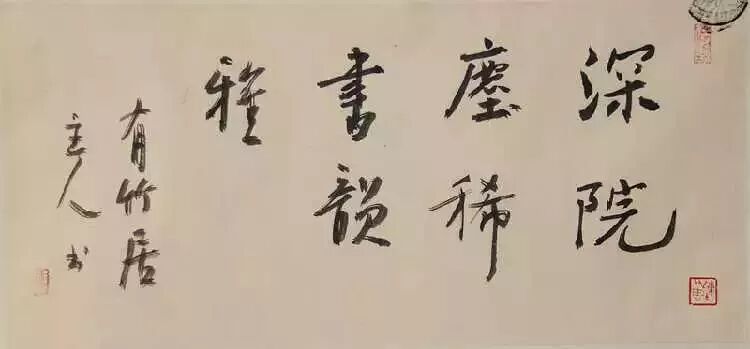 深院
塵稀
書韻
雅
有竹居
主人书